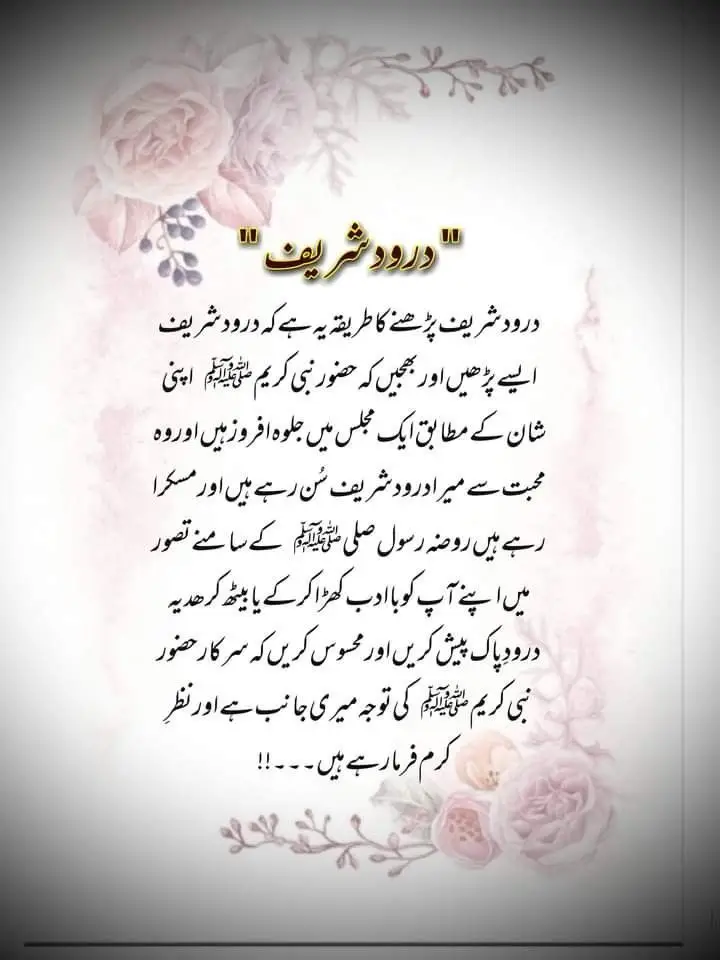 "درود شریف"
درود شریف پڑھنے کا طریقہ یہ ہے کہ درود شریف
ایسے پڑھیں اور بھجیں کہ حضور نبی کریم ﷺ اپنی
شان کے مطابق ایک مجلس میں جلوہ افروز ہیں اور وہ
محبت سے میرا درود شریف سُن رہے ہیں اور مسکرا
رہے ہیں روضہ رسول صلی ﷺ کے سامنے تصور
میں اپنے آپ کو باادب کھڑا کر کے یا بیٹھ کر ھدیہ
درودِ پاک پیش کریں اور محسوس کریں کہ سرکار حضور
نبی کریم ﷺ کی توجہ میری جانب ہے اور نظرِ
کرم فرما رہے ہیں۔۔۔!!